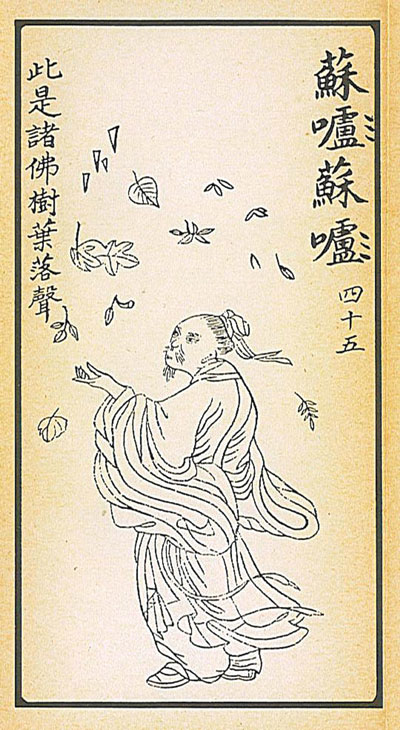 蘇嚧蘇嚧
四十五
此是諸佛樹葉落聲